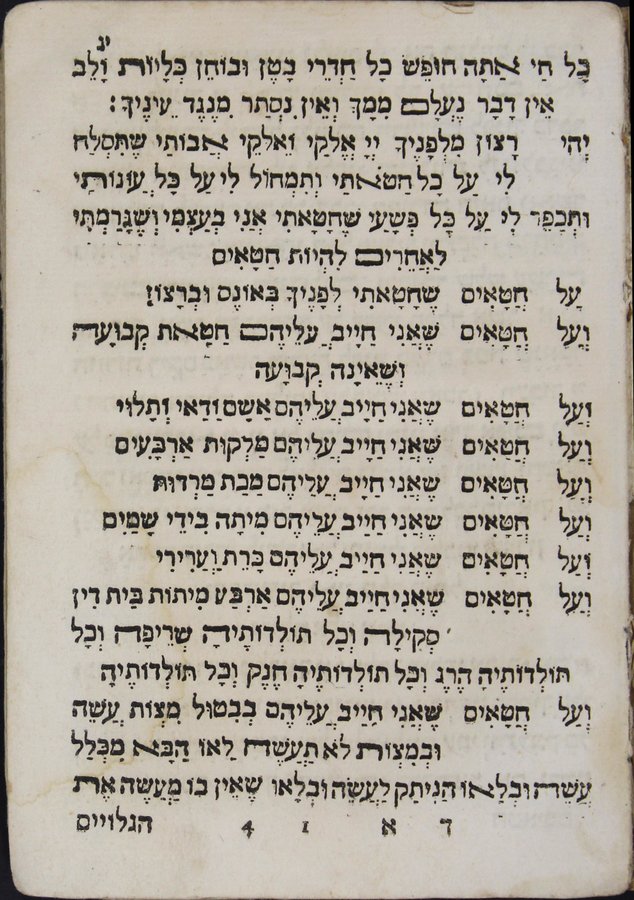 יג
כָּל חַי אַתָּה חוֹפֵשׂ כָּל חַדְרֵי בָטֶן וּבוֹחֵן כְּלָיוֹת וָלֵב
אֵין דָּבָר נֶעְלָם מִמְּךָ וְאֵין נִסְתָּר מִנֶּגֶד עֵינֶיךָ :
יְהִי רָצוֹן מִלְּפָנֶיךָ יְיָ אֱלֹקַי וֵאלֹקֵי אֲבוֹתַי שֶׁתִּסְלַח
לִי עַל כָּל חַטֹּאתַי וְתִמְחוֹל לִי עַל כָּל עֲוֹנוֹתַי
וּתְכַפֵּר לִי עַל כָּל פְּשָׁעַי שֶׁחָטָאתִי אֲנִי בְּעַצְמִי וְשֶׁגָּרַמְתִּי
לַאֲחֵרִים לִהְיוֹת חַטָּאִים
עַל חֲטָאִים שֶׁחָטָאתִי לְפָנֶיךָ בְּאוֹנֶס וּבְרָצוֹן
וְעַל חֲטָאִים שֶׁאֲנִי חַיָּיב עֲלֵיהֶם חַטָּאת קְבוּעָה
וְשֶׁאֵינָהּ קְבוּעָה
וְעַל חֲטָאִים שֶׁאֲנִי חַיָּיב עֲלֵיהֶם אָשָׁם וַדַּאי וְתָלוּי
וְעַל חֲטָאִים שֶׁאֲנִי חַיָּיב עֲלֵיהֶם מַלְקוּת אַרְבָּעִים
וְעַל חֲטָאִים שֶׁאֲנִי חַיָּיב עֲלֵיהֶם מַכַּת מַרְדּוּת
וְעַל חֲטָאִים שֶׁאֲנִי חַיָּיב עֲלֵיהֶם מִיתָה בִּידֵי שָׁמַיִם
וְעַל חֲטָאִים שֶׁאֲנִי חַיָּיב עֲלֵיהֶם כָּרֵת וַעֲרִירִי
וְעַל חֲטָאִים שֶׁאֲנִי חַיָּיב עֲלֵיהֶם אַרְבַּע מִיתוֹת בֵּית דִּין
סְקִילָה וְכָל תּוֹלְדוֹתֶיהָ שְׂרֵיפָה וְכָל
תּוֹלְדוֹתֶיהָ הֶרֶג וְכָל תּוֹלְדוֹתֶיהָ חֶנֶק וְכָל תּוֹלְדוֹתֶיהָ
וְעַל חֲטָאִים שֶׁאֲנִי חַיָּיב עֲלֵיהֶם בְּבִטּוּל מִצְוֹת עֲשֵׂה
וּבְמִצְוֹת לֹא תַעֲשֶׂה לַאו הַבָּא מִכְּלַל
עֲשֵׂה וּבְלָאו הַנִּיתָק לַעֲשֵׂה וּבְלָאו שֶׁאֵין בּוֹ מַעֲשֶׂה אֶת
ד א 1 4 הגלויים